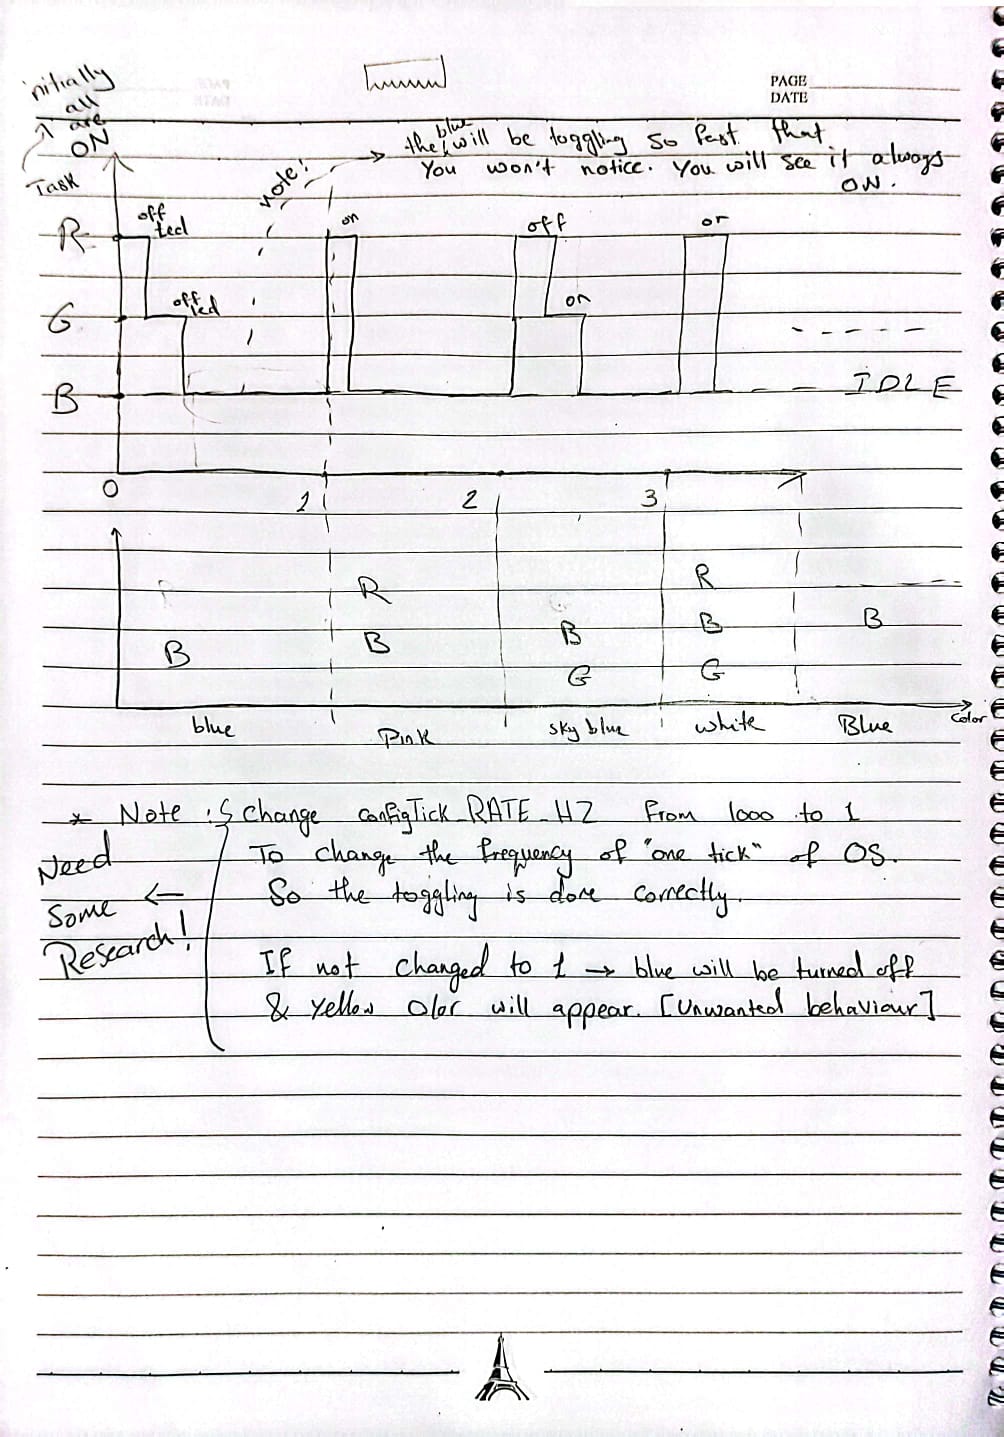 PAGE
DATE
initially
all
are
ON
Task
Note!
the blue will be toggling so fast that
You won't notice. You will see it always
ON.
R
off
led
on
off
on
G
off
led
on
B
IDLE
0
1
2
3
R
R
B
B
B
B
B
G
G
Color
blue
Pink
sky blue
white
Blue
* Note : Change configTick_RATE_HZ From 1000 to 1
To change the frequency of "one tick" of OS.
So the toggling is done correctly.
Need
Some ←
Research!
If not changed to 1 → blue will be turned off
& Yellow Olor will appear. [Unwanted behaviour]